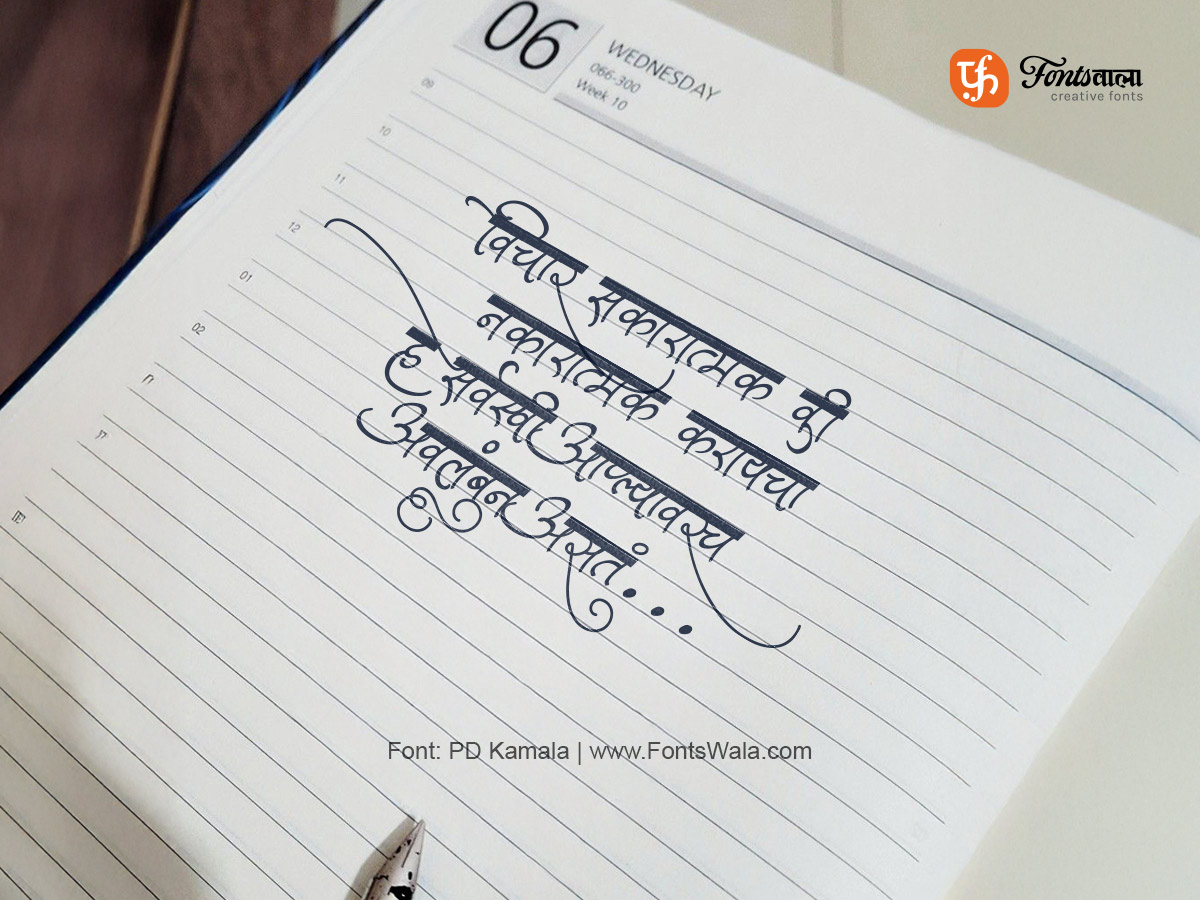 06
WEDNESDAY
066-300
Week 10
Fontsवाला
creative fonts
09
10
11
12
01
02
विचार सकारात्मक की
नकारात्मक करायचा
हे सर्वस्वी आपल्यावरच
अवलंबून असतं...
Font: PD Kamala | www.FontsWala.com